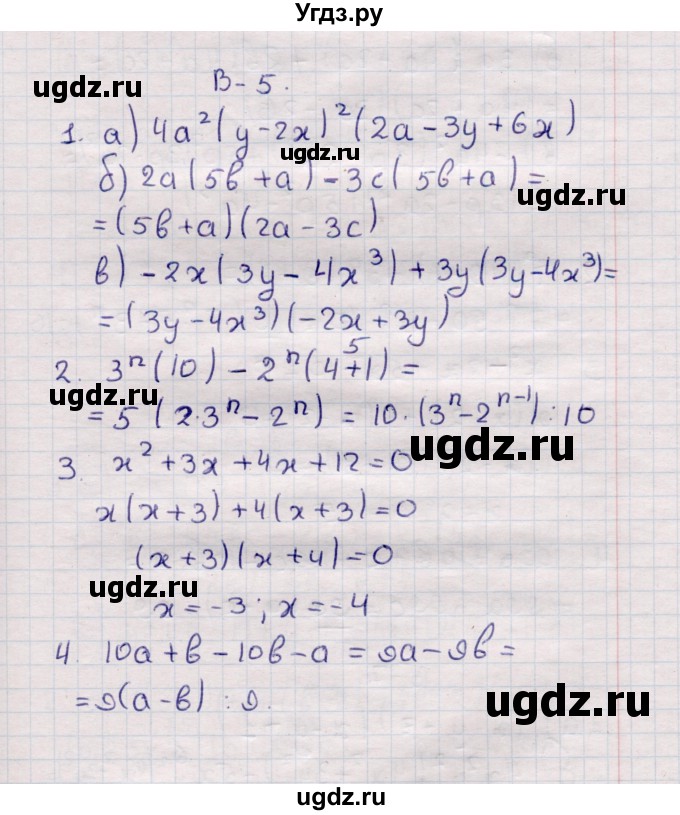 Угдз.ру
ugdz.ru
В-5.
1. а) 4a²(y-2x)²(2a-3y+6x)
ugdz.ru
б) 2a(5b+a)-3c(5b+a)=
ugdz.ru
=(5b+a)(2a-3c)
в) -2x(3y-4x³)+3y(3y-4x³)=
ugdz.ru
=(3y-4x³)(-2x+3y)
5
2. 3ⁿ(10)-2ⁿ(4+1)=
=5(2·3ⁿ-2ⁿ)=10·(3ⁿ-2ⁿ⁻¹):10
ugdz.ru
3. x²+3x+4x+12=0
x(x+3)+4(x+3)=0
(x+3)(x+4)=0
ugdz.ru
x=-3; x=-4
4. 10a+b-10b-a=9a-9b=
=9(a-b):9.
ugdz.ru
ugdz.ru